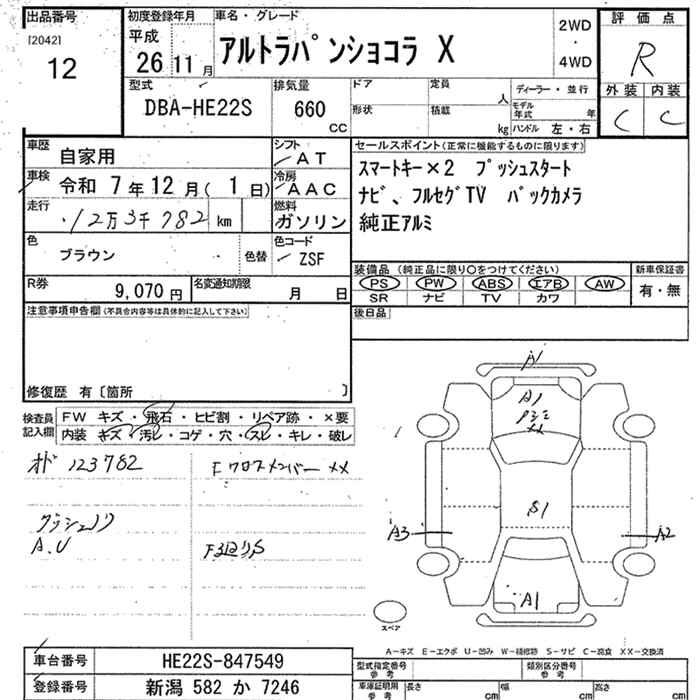 出品番号
[2042]
12
初度登録年月
平成
26 11 月
車名・グレード
アルトラパンショコラ X
2WD
・
4WD
評価点
R
外装 内装
C C
型式
DBA-HE22S
排気量
660
CC
ドア
形状
定員
人
積載
kg
ディーラー・並行
モデル年式 年
ハンドル 左・右
車歴
自家用
シフト
AT
車検
令和 7年 12月( 1日)
冷房
AAC
走行
12万3千782 km
燃料
ガソリン
色
ブラウン
色替
色コード
ZSF
R券
9,070 円
名変通知期限
月 日
セールスポイント(正常に機能するものに限ります)
スマートキー×2 プッシュスタート
ナビ、フルセグTV バックカメラ
純正アルミ
装備品 (純正品に限り○をつけてください)
PS PW ABS エアB AW
SR ナビ TV カワ
新車保証書
有・無
後日品
注意事項申告欄(不具合内容等は具体的に記入して下さい)
修復歴 有〔箇所 〕
検査員
記入欄
FW キズ・飛石・ヒビ割・リペア跡・×要
内装 キズ・汚レ・コゲ・穴・スレ・キレ・破レ
オド 123782
Fクロスメンバー ××
A.U
A1
A1
××
S1
A3
A2
A1
スペア
A-キズ E-エクボ U-凹み W-補修跡 S-サビ C-腐食 XX-交換済
車台番号
HE22S-847549
登録番号
新潟 582 か 7246
型式指定番号
参考
類別区分番号
参考
車庫証明用
参考
長さ cm
幅 cm
高さ cm